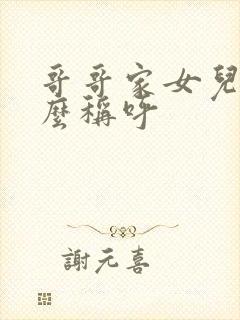 哥哥家女兒
麼稱呼
謝元喜